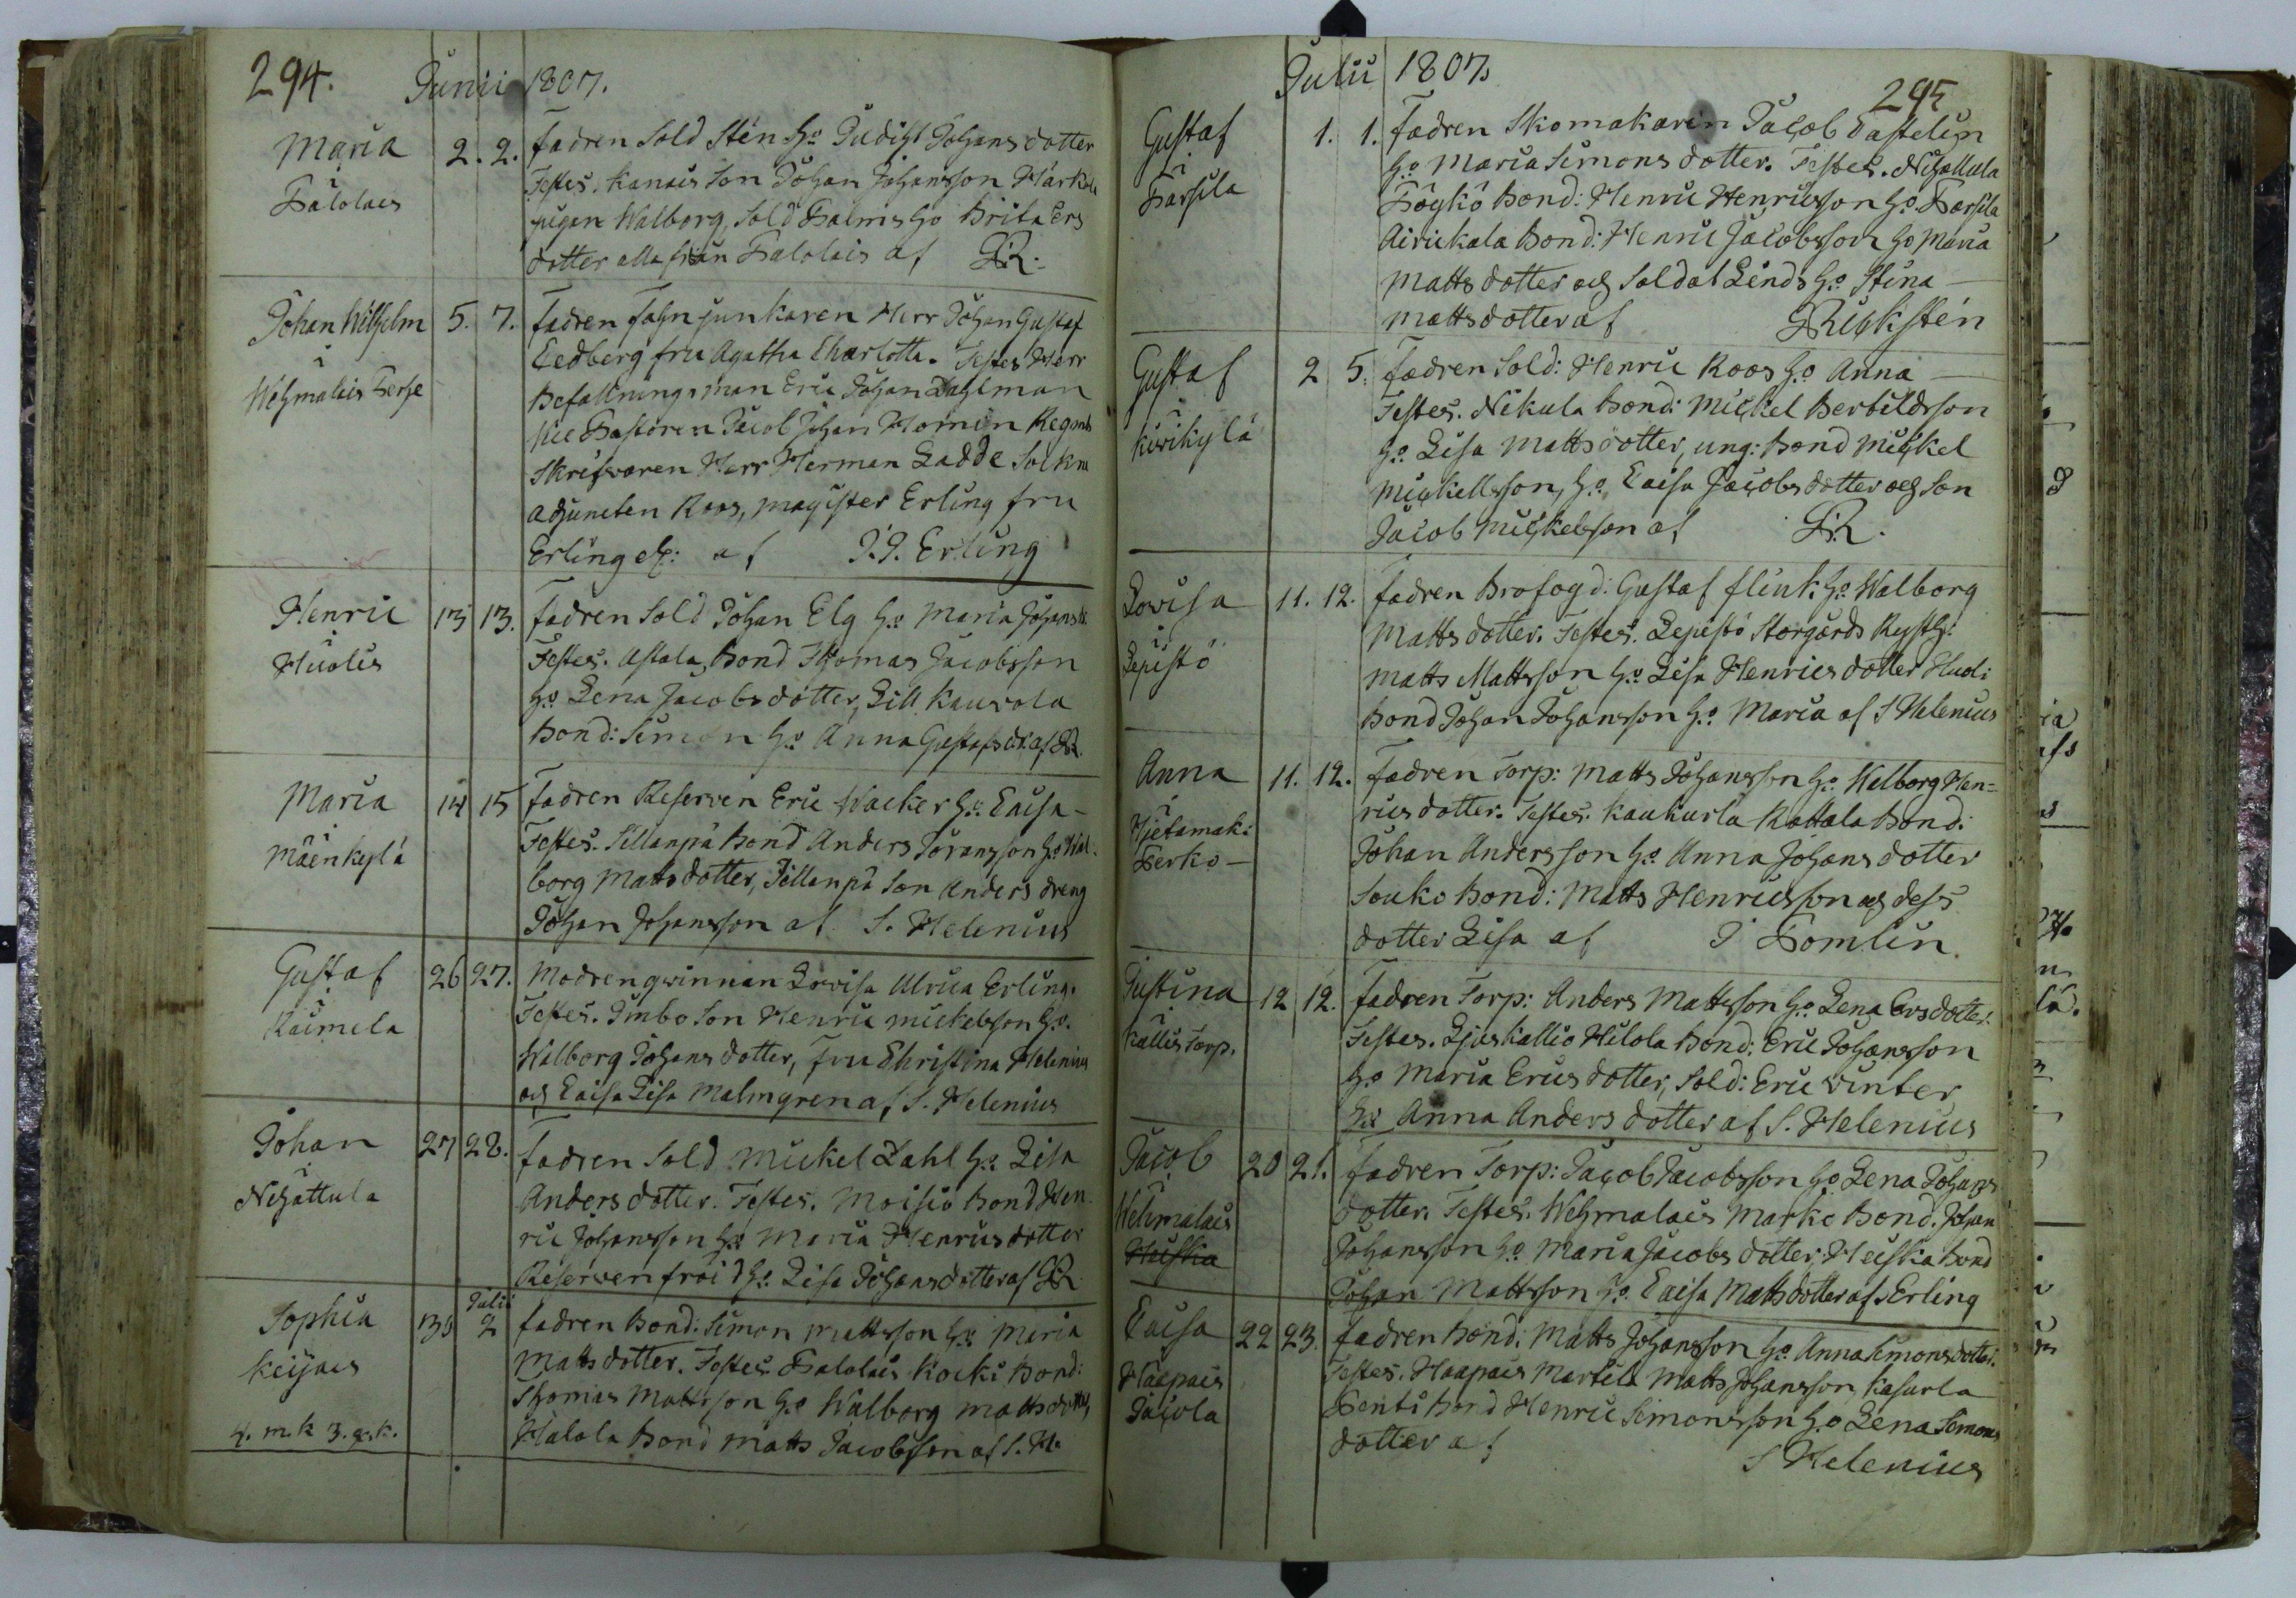 294.
Junii 1807.
Maria
i
Palolais
2. 2.
Fadren Sold Stén H:o Judith Johans dotter
Testes. Kanais Son Johan Johansson Härköle
pigan Walborg, Sold Palms H:o Brita Ers
dotter alla från Palolais af GR.
Johan Wilhelm
i
Wehmalais Perhe
5. 7.
Fadren Fahnjunkaren Herr Johan Gustaf
Cedberg fru Agatha Charlotta. Testes Herr
Befallningsman Eric Johan Dahlman
Vice Pastoren Jacob Johan Hornin Regmts
Skrifvaren Herr Herman Ladde Sockne
adjuncten Roos, magister Erling fru
Erling etc: af J.J. Erling
Henric
i
Huolis
13 13.
Fadren Sold Johan Elg H:o Maria Johansdr.
Testes. Astala Bond Thomas Jacobsson
H:o Lena Jacobs dotter, Lill Kaurola
Bond: Simon H:o Anna Gustafs dr. af GR.
Maria
i
Mäenkylä
14 15
Fadren Reserven Eric Wacker H:o Caisa –
Testes. Sillanpä Bond Anders Göransson H:o Wal-
borg Matts dotter, Sillanpä Son Anders dreng
Johan Johansson af S. Helenius
Gustaf
i
Kaimela
26 27.
Modren qwinnan Lovisa Ulrica Erling.
Testes. Simbo Son Henric Mickelsson H:o
Walborg Johans dotter, Fru Christina Helenius
och Caisa Lisa Malmgren af S. Helenius
Johan
i
Nihattula
27 28.
Fadren Sold Mickel Dahl H:o Lisa
Anders dotter. Testes. Moisio Bond Hen-
ric Johansson H:o Maria Henrics dotter
Reserven Fröid H:o Lisa Johans dotter af GR.
Sophia
Keijais
4. m.k 3. q.k.
30
Julii
2
Fadren Bond: Simon Mattsson H:o Maria
Matts dotter. Testes Palolais Kocki Bond:
Thomas Mattsson H:o Walborg Matts dotter,
Halola Bond Matts Jacobsson af S. H.
Julii 1807.
295
Gustaf
i
Parsila
1. 1.
Fadren Skomakaren Jacob Castelin
H:o Maria Simons dotter. Testes. Nihattula
Pöykö Bond: Henric Henricsson H:o Parsila
Airickala Bond: Henric Jacobsson H:o Maria
Matts dotter och Soldat Linds H:o Stina –
Matts dotter af GRickstén
Gustaf
i
Kirikylä
2 5.
Fadren Sold: Henric Roos H:o Anna –
Testes. Nikula Bond: Mickel Bertilsson
H:o Lisa Matts dotter, ung: Bond Mickel
Mickellsson, H:o Caisa Jacobs dotter och Son
Jacob Mickelsson af GR.
Lovisa
i
Lepistö
11. 12.
Fadren Brofogd: Gustaf Flink H:o Walborg
Matts dotter. Testes. Lepistö Storgårds Rysth:
Matts Mattsson H:o Lisa Henrics dotter Huoli
Bond Johan Johansson H:o Maria af S Helenius
Anna
i
Hjetamaki
Perko –
11. 12.
Fadren Torp: Matts Johansson H:o Walborg Hen=
rics dotter. Testes. Kaukurla Kattala Bond:
Johan Andersson H:o Anna Johans dotter
Souko Bond: Matts Henricsson och dess
dotter Lisa af J Pomlin.
Justina
i
Kallis Torp.
12 12.
Fadren Torp: Anders Mattsson H:o Lena Ersdotter.
Testes. Lijuskallio Hilola Bond: Eric Johansson
H:o Maria Erics dotter, Sold: Eric Winter
H:o Anna Anders dotter af S. Helenius
Jacob
i
Wehmalais
Heiska
20 21.
Fadren Torp: Jacob Jacobsson H:o Lena Johans
dotter. Testes. Wehmalais Marko Bond. Johan
Johansson H:o Maria Jacobs dotter, Heiska Bond
Johan Mattsson H:o Caisa Matts dotter af Erling
Caisa
Haapais
Jacola
22 23.
Fadren Bond: Matts Johansson H:o Anna Simons dotter.
Testes. Haapais Martela Matts Johansson, Kasurla
Penti Bond Henric Simonsson H:o Lena Simons
dotter af
S Helenius